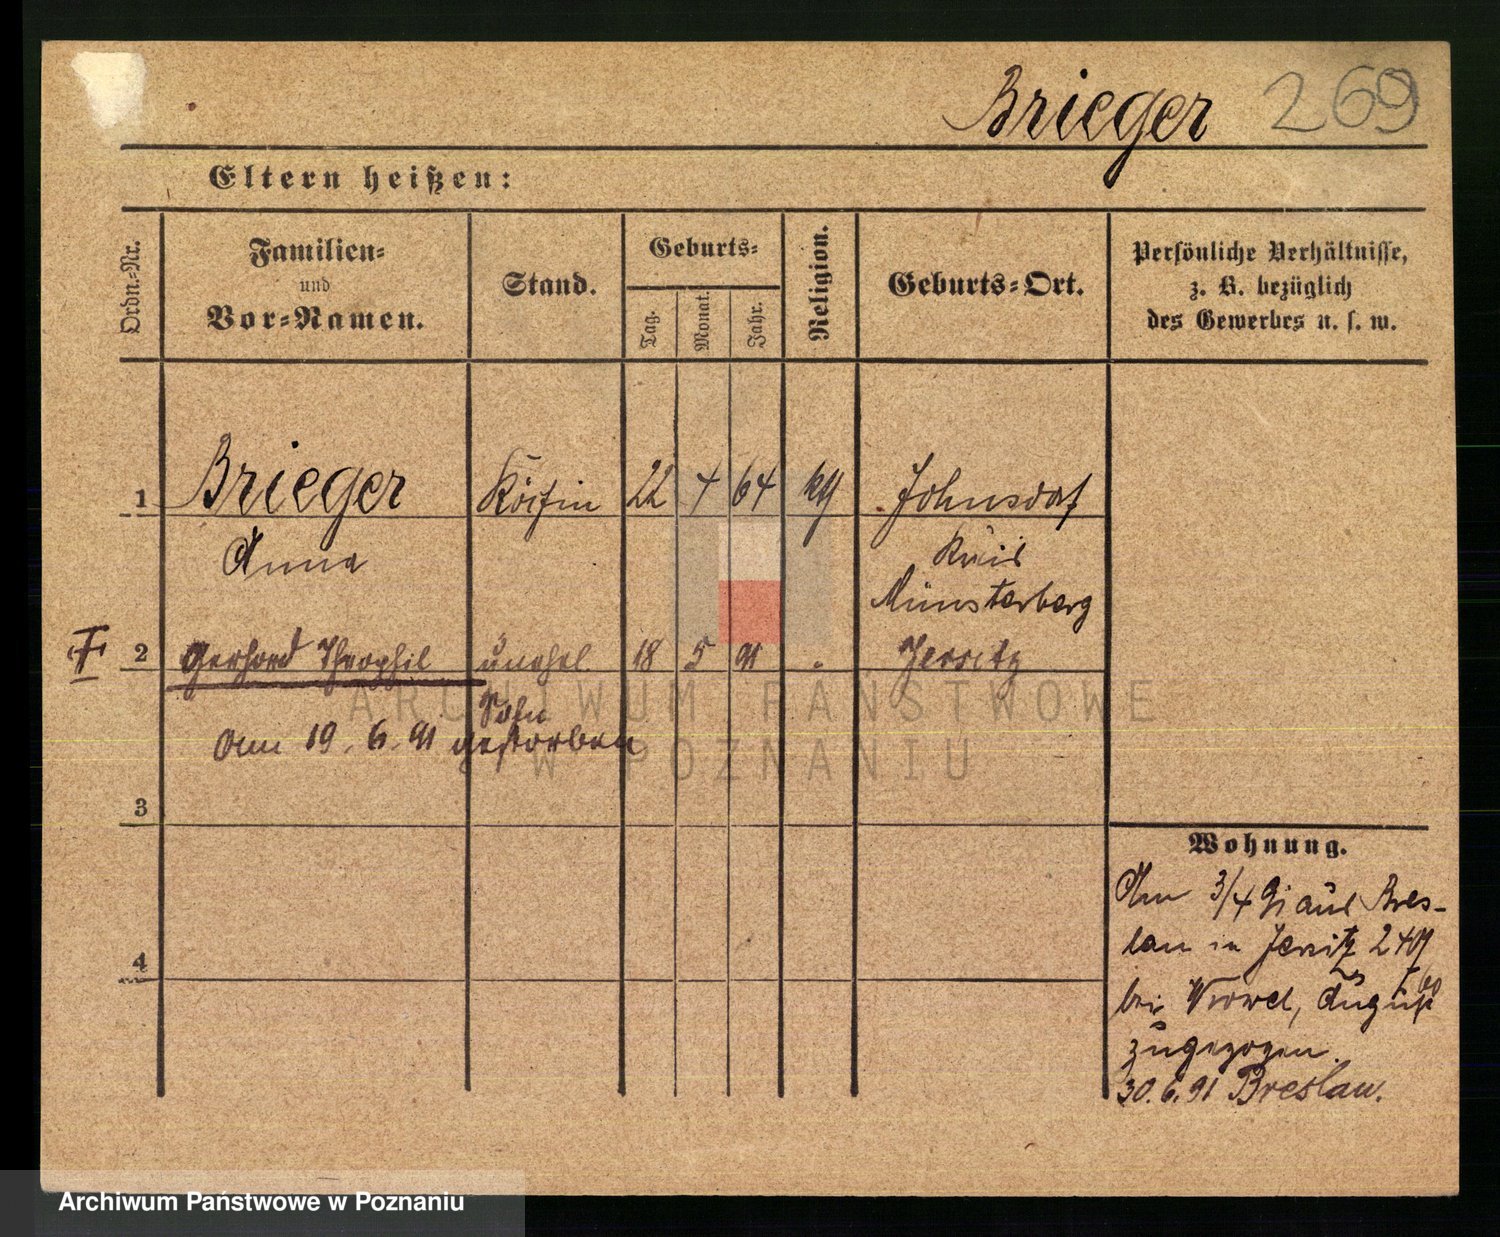 Brieger 269
Eltern heißen:
Ordn.-Nr.
Familien-
und
Vor-Namen.
Stand.
Geburts-
Tag.
Monat.
Jahr.
Religion.
Geburts-Ort.
Persönliche Verhältnisse,
z. B. bezüglich
des Gewerbes u. s. w.
1 Brieger Köchin 22 4 64 Johnsdorf
Anna Kreis
Münsterberg
2 Gerhard Theophil unehel. 18 5 91 Jersitz
Sohn
Am 19. 6. 91 gestorben
3
4
Wohnung.
Am 3/4 91 aus Bres-
lau in Jersitz
bei August
zugezogen.
30. 6. 91 Breslau.
ARCHIWUM PAŃSTWOWE
W POZNANIU
Archiwum Państwowe w Poznaniu